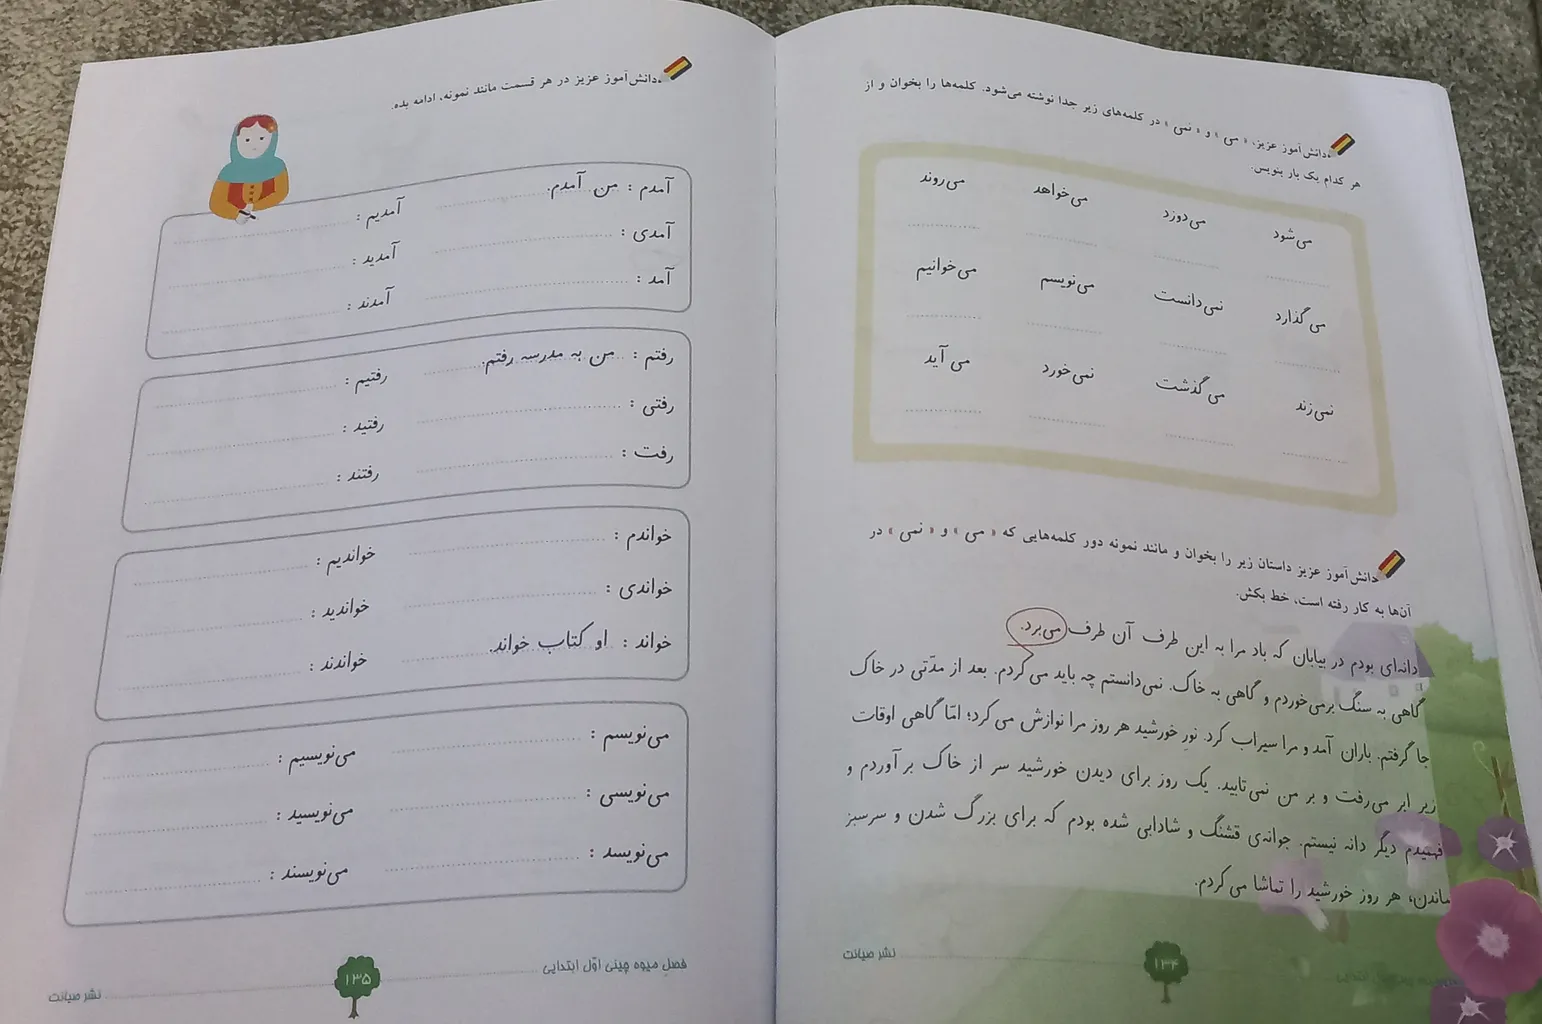 دانش‌آموز عزیز، « می » و « نمی » در کلمه‌های زیر جدا نوشته می‌شود. کلمه‌ها را بخوان و از
هر کدام یک بار بنویس.
می‌شود می‌دوزد می‌خواهد می‌روند
می‌گذارد نمی‌دانست می‌نویسم می‌خوانیم
نمی‌زند می‌گذشت نمی‌خورد می‌آید
دانش‌آموز عزیز داستان زیر را بخوان و مانند نمونه دور کلمه‌هایی که « می » و « نمی » در
آن‌ها به کار رفته است، خط بکش.
دانه‌ای بودم در بیابان که باد مرا به این طرف آن طرف می‌برد.
گاهی به سنگ برمی‌خوردم و گاهی به خاک. نمی‌دانستم چه باید می‌کردم. بعد از مدّتی در خاک
جا گرفتم. باران آمد و مرا سیراب کرد. نور خورشید هر روز مرا نوازش می‌کرد؛ امّا گاهی اوقات
زیر ابر می‌رفت و بر من نمی‌تابید. یک روز برای دیدن خورشید سر از خاک بر آوردم و
فهمیدم دیگر دانه نیستم. جوانه‌ی قشنگ و شادابی شده بودم که برای بزرگ شدن و سرسبز
ماندن، هر روز خورشید را تماشا می‌کردم.
۱۳۴
نشر صیانت
دانش‌آموز عزیز در هر قسمت مانند نمونه، ادامه بده.
آمدم : من آمدم. آمدیم :
آمدی : آمدید :
آمد : آمدند :
رفتم : من به مدرسه رفتم. رفتیم :
رفتی : رفتید :
رفت : رفتند :
خواندم : خواندیم :
خواندی : خواندید :
خواند : او کتاب خواند. خواندند :
می‌نویسم : می‌نویسیم :
می‌نویسی : می‌نویسید :
می‌نویسد : می‌نویسند :
فصل میوه چینی اوّل ابتدایی
۱۳۵
نشر صیانت